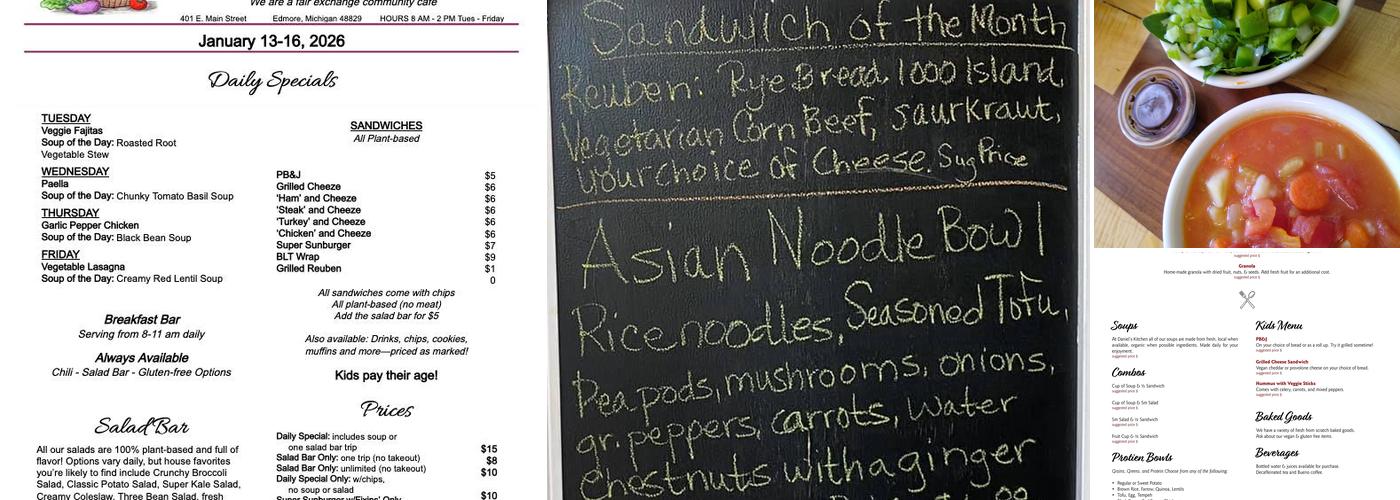 We are a fair exchange community cafe
401 E. Main Street Edmore, Michigan 48829 HOURS 8 AM - 2 PM Tues - Friday
January 13-16, 2026
Daily Specials
TUESDAY
Veggie Fajitas
Soup of the Day: Roasted Root
Vegetable Stew
WEDNESDAY
Paella
Soup of the Day: Chunky Tomato Basil Soup
THURSDAY
Garlic Pepper Chicken
Soup of the Day: Black Bean Soup
FRIDAY
Vegetable Lasagna
Soup of the Day: Creamy Red Lentil Soup
Breakfast Bar
Serving from 8-11 am daily
Always Available
Chili - Salad Bar - Gluten-free Options
Salad Bar
All our salads are 100% plant-based and full of
flavor! Options vary daily, but house favorites
you're likely to find include Crunchy Broccoli
Salad, Classic Potato Salad, Super Kale Salad,
Creamy Coleslaw, Three Bean Salad, fresh
SANDWICHES
All Plant-based
PB&J $5
Grilled Cheeze $6
'Ham' and Cheeze $6
'Steak' and Cheeze $6
'Turkey' and Cheeze $6
'Chicken' and Cheeze $6
Super Sunburger $7
BLT Wrap $9
Grilled Reuben $1
0
All sandwiches come with chips
All plant-based (no meat)
Add the salad bar for $5
Also available: Drinks, chips, cookies,
muffins and more—priced as marked!
Kids pay their age!
Prices
Daily Special: includes soup or
one salad bar trip $15
Salad Bar Only: one trip (no takeout) $8
Salad Bar Only: unlimited (no takeout) $10
Daily Special Only: w/chips,
no soup or salad $10
Super Sunburger w/Fixins' Only
Sandwich of the Month
Reuben: Rye Bread, 1000 Island,
Vegetarian Corn Beef, saurkraut,
your choice of Cheese. Sug Price
Asian Noodle Bowl
Rice noodles, Seasoned Tofu,
Pea pods, mushrooms, onions,
gr. peppers, carrots, water
chestnuts with a ginger
suggested price $
Granola
Home-made granola with dried fruit, nuts, & seeds. Add fresh fruit for an additional cost.
suggested price $
Soups
At Daniel's Kitchen all of our soups are made from fresh, local when
available, organic when possible ingredients. Made daily for your
enjoyment.
suggested price $
Combos
Cup of Soup & ½ Sandwich
suggested price $
Cup of Soup & Sm Salad
suggested price $
Sm Salad & ½ Sandwich
suggested price $
Fruit Cup & ½ Sandwich
suggested price $
Protien Bowls
Grains, Greens, and Protein Choose from any of the following:
• Regular or Sweet Potato
• Brown Rice, Farrow, Quinoa, Lentils
• Tofu, Egg, Tempeh
Kids Menu
PB&J
On your choice of bread or as a roll up. Try it grilled sometime!
suggested price $
Grilled Cheese Sandwich
Vegan cheddar or provolone cheese on your choice of bread.
suggested price $
Hummus with Veggie Sticks
Comes with celery, carrots, and mixed peppers.
suggested price $
Baked Goods
We have a variety of fresh from scratch baked goods.
Ask about our vegan & gluten free items.
Beverages
Bottled water & juices available for purchase.
Decaffeinated tea and Bueno coffee.